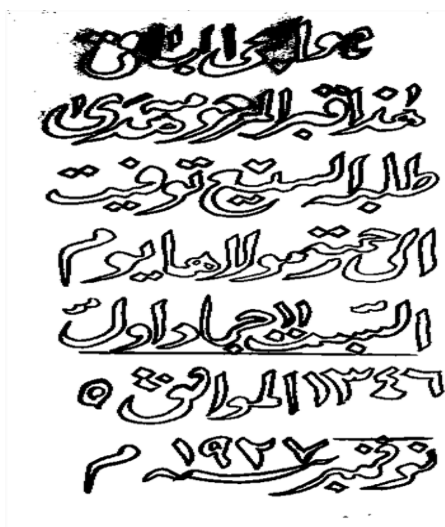 هو الحي الباقي
هذا قبر المرحومة هدى
طالب توفيت
الى رحمة مولاها يوم
السبت ١١ جماد اول
١٣٤٦ الموافق ٥
نوفمبر ١٩٢٧ م